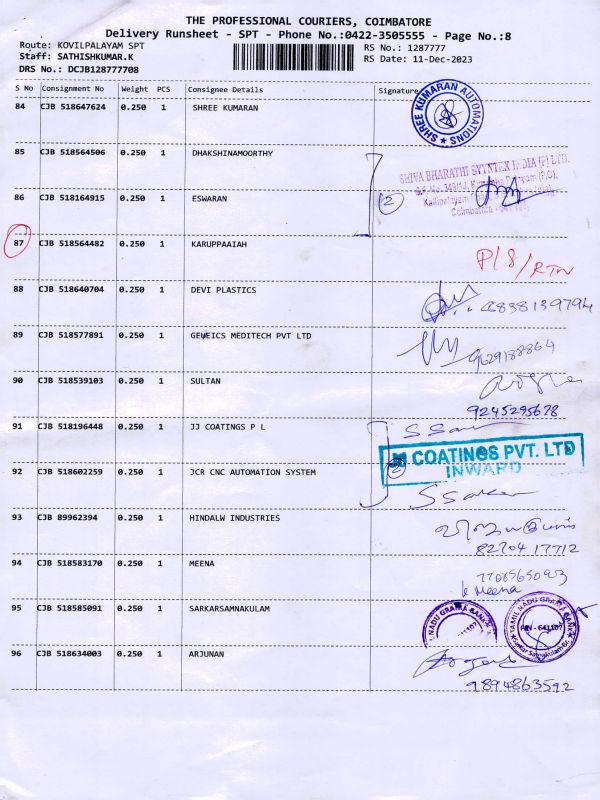 THE PROFESSIONAL COURIERS, COIMBATORE
Delivery Runsheet - SPT - Phone No.:0422-3505555 - Page No.:8
Route: KOVILPALAYAM SPT
Staff: SATHISHKUMAR.K
DRS No.: DCJB128777708
RS No.: 1287777
RS Date: 11-Dec-2023
S No Consignment No Weight PCS Consignee Details Signature
84 CJB 518647624 0.250 1 SHREE KUMARAN
SHREE KUMARAN AUTOMATIONS
85 CJB 518564506 0.250 1 DHAKSHINAMOORTHY
SHIVA BHARATHI SYNTEX INDIA (P) LTD.
86 CJB 518164915 0.250 1 ESWARAN
2
87 CJB 518564482 0.250 1 KARUPPAAIAH
P/8/RTN
88 CJB 518640704 0.250 1 DEVI PLASTICS
6838139794
89 CJB 518577891 0.250 1 GENEICS MEDITECH PVT LTD
9629188864
90 CJB 518539103 0.250 1 SULTAN
9245295678
91 CJB 518196448 0.250 1 JJ COATINGS P L
JJ COATINGS PVT. LTD
INWARD
92 CJB 518602259 0.250 1 JCR CNC AUTOMATION SYSTEM
93 CJB 89962394 0.250 1 HINDALW INDUSTRIES
82704 17712
94 CJB 518583170 0.250 1 MEENA
7708565093
k Meena
95 CJB 518585091 0.250 1 SARKARSAMNAKULAM
NADU GRAMA BANK
TAMIL NADU GRAMA BANK
PIN - 641107
96 CJB 518634003 0.250 1 ARJUNAN
9894863592